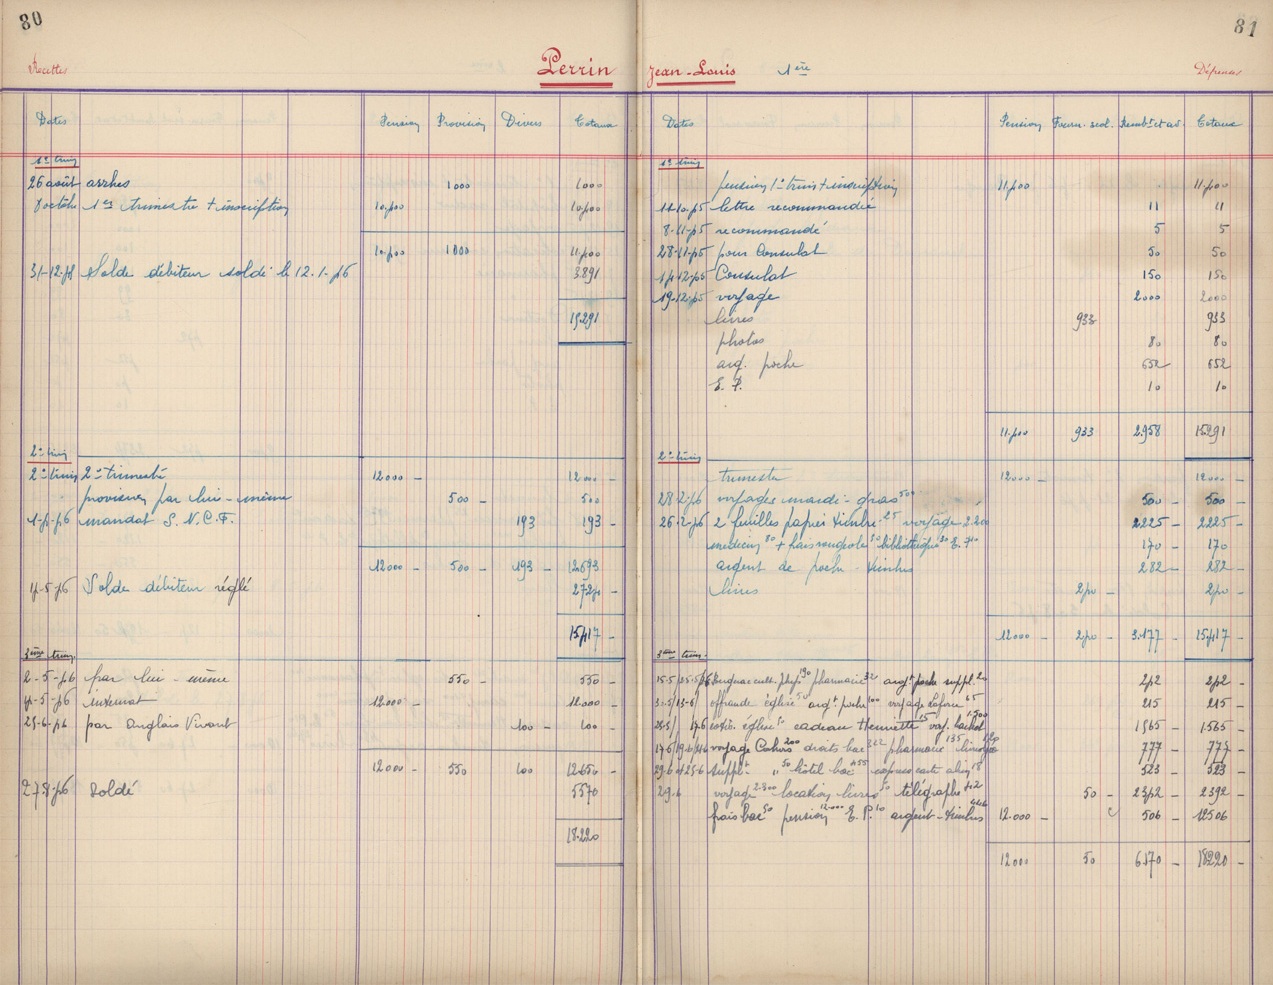 80
Recettes
Perrin
Dates Pension Provision Divers Totaux
1er trim
26 août arrhes 1000 1000
7 octobre 1er trimestre + inscription 10.400 10.400
10.400 1000 11.400
31-12-55 Solde débiteur soldé le 12.1.56 3.891
15.291
2e trim
2e trim 2e trimestre 12000 - 12000 -
provision par lui-même 500 - 500 -
mandat S.N.C.F. 193 193 -
12000 - 500 - 193 - 12.693
Solde débiteur réglé
3ème trim.
2-5-56 par lui-même 550 - 550 -
internat 12.000 - 12.000 -
25-6-56 par Anglais Vivant 100 - 100 -
12000 - 550 - 100 - 12.650 -
Soldé 5570
18.220
81
Jean-Louis 1ère
Dépenses
Dates Pension Fourn. scol. Remb.t et av. Totaux
1er trim
pension 1er trim + inscription 11.400 11.400
lettre recommandée 11 11
recommandé 5 5
28-11-55 pour Consulat 50 50
Consulat 150 150
19-12-55 voyage 2000 2000
livres 933 933
photos 80 80
arg. poche 652 652
E. P. 10 10
11.400 933 2.958 15.291
2e trim
trimestre 12000 - 12000 -
28-2-56 voyages mardi-gras 500 500 - 500 -
26-2-56 2 feuilles papier timbré 25 voyage 2.200 2225 - 2225 -
médecin 80 + bibliothèque E. P. 170 - 170 -
argent de poche - timbres 282 - 282 -
livres
12000 - 3.177 - 15.417 -
3ème trim.
pharmacie argt poche suppl.
offrande église 50 argt poche 100 voyage 65 215 - 215 -
église 50 cadeau Henriette 15 voy. 1500 1565 - 1565 -
voyage Cahors 200 droits bac pharmacie 135 777 - 777 -
suppl. " 50 hôtel bac 455 18 523 - 523 -
29-6 voyage location livres 50 télégraphe 50 - 2392 -
frais bac 50 pension 12.000 E. P. 10 argent - timbres 446 12.000 - 506 - 12506
12000 50 6170 - 18220 -